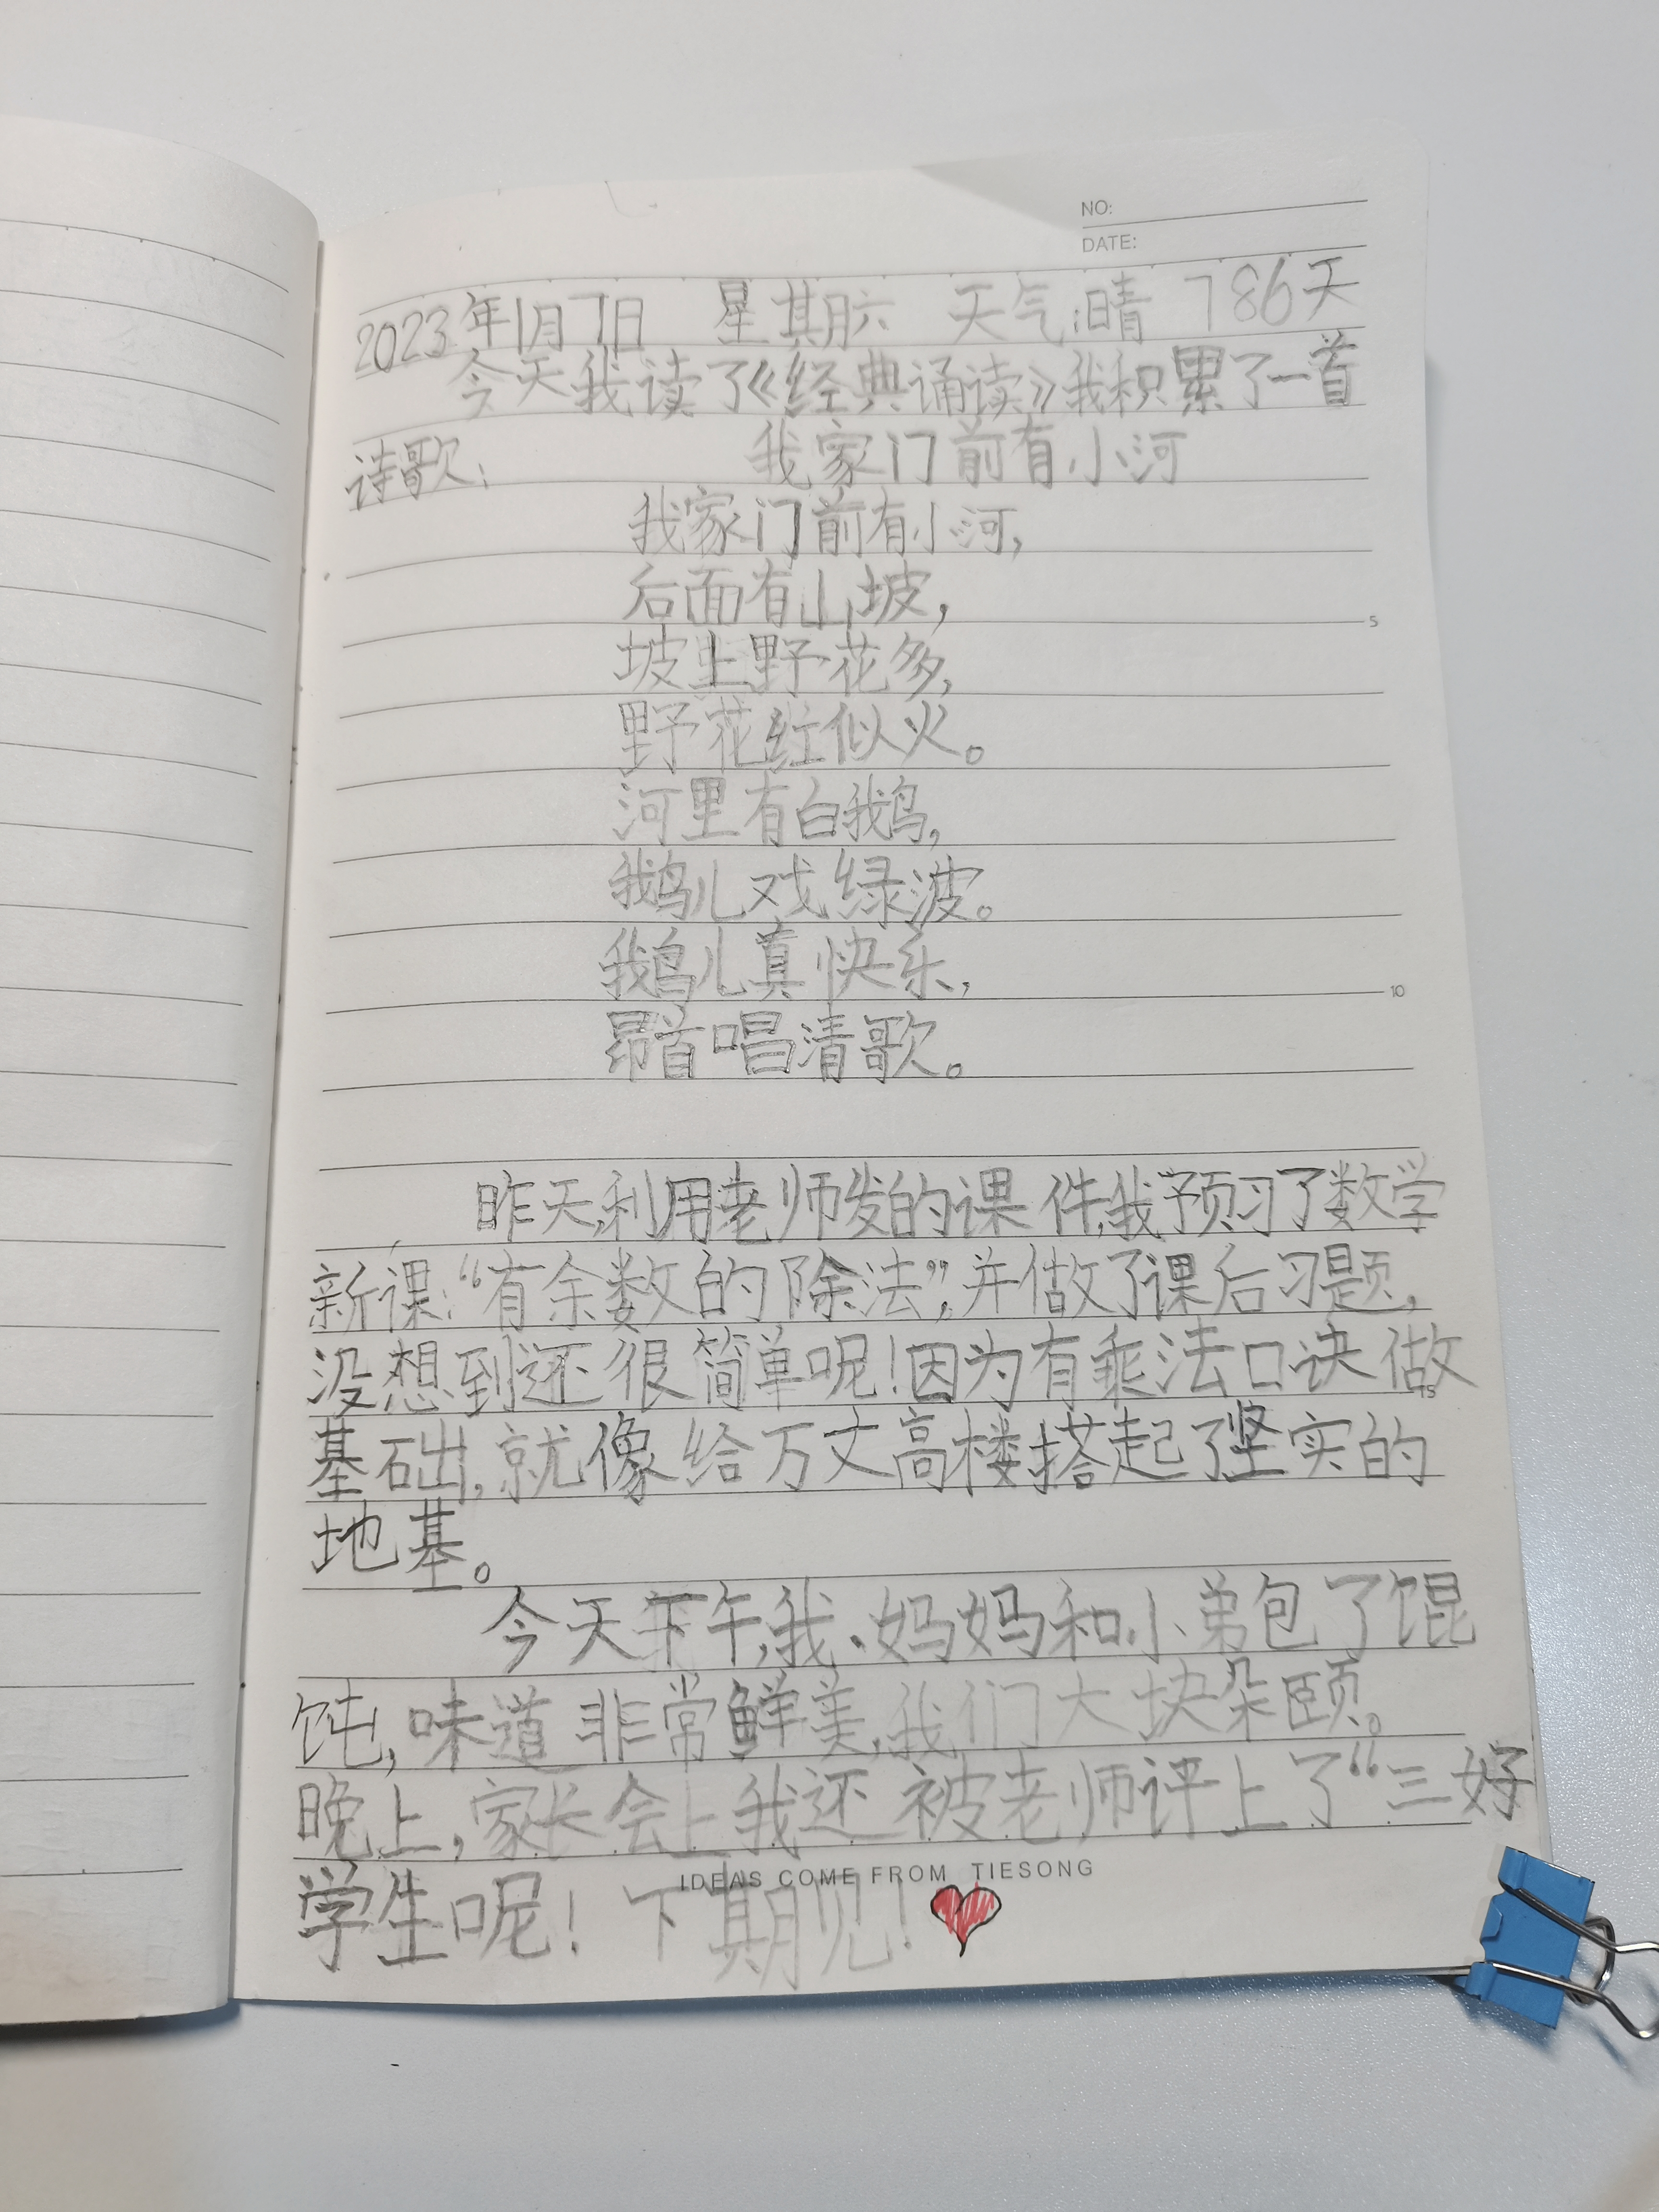 NO:
DATE:
2023年1月7日 星期六 天气:晴 786天
今天我读了《经典诵读》我积累了一首
诗歌: 我家门前有小河
我家门前有小河,
后面有山坡,
坡上野花多,
野花红似火。
河里有白鹅,
鹅儿戏绿波。
鹅儿真快乐,
昂首唱清歌。
昨天,利用老师发的课件,我预习了数学
新课:“有余数的除法”,并做了课后习题,
没想到还很简单呢!因为有乘法口诀做
基础,就像给万丈高楼搭起了坚实的
地基。
今天下午,我、妈妈和小弟包了馄
饨,味道非常鲜美,我们大块朵颐。
晚上,家长会上我还被老师评上了“三好
学生呢!下期见!
IDEAS COME FROM TIESONG
5
10
15